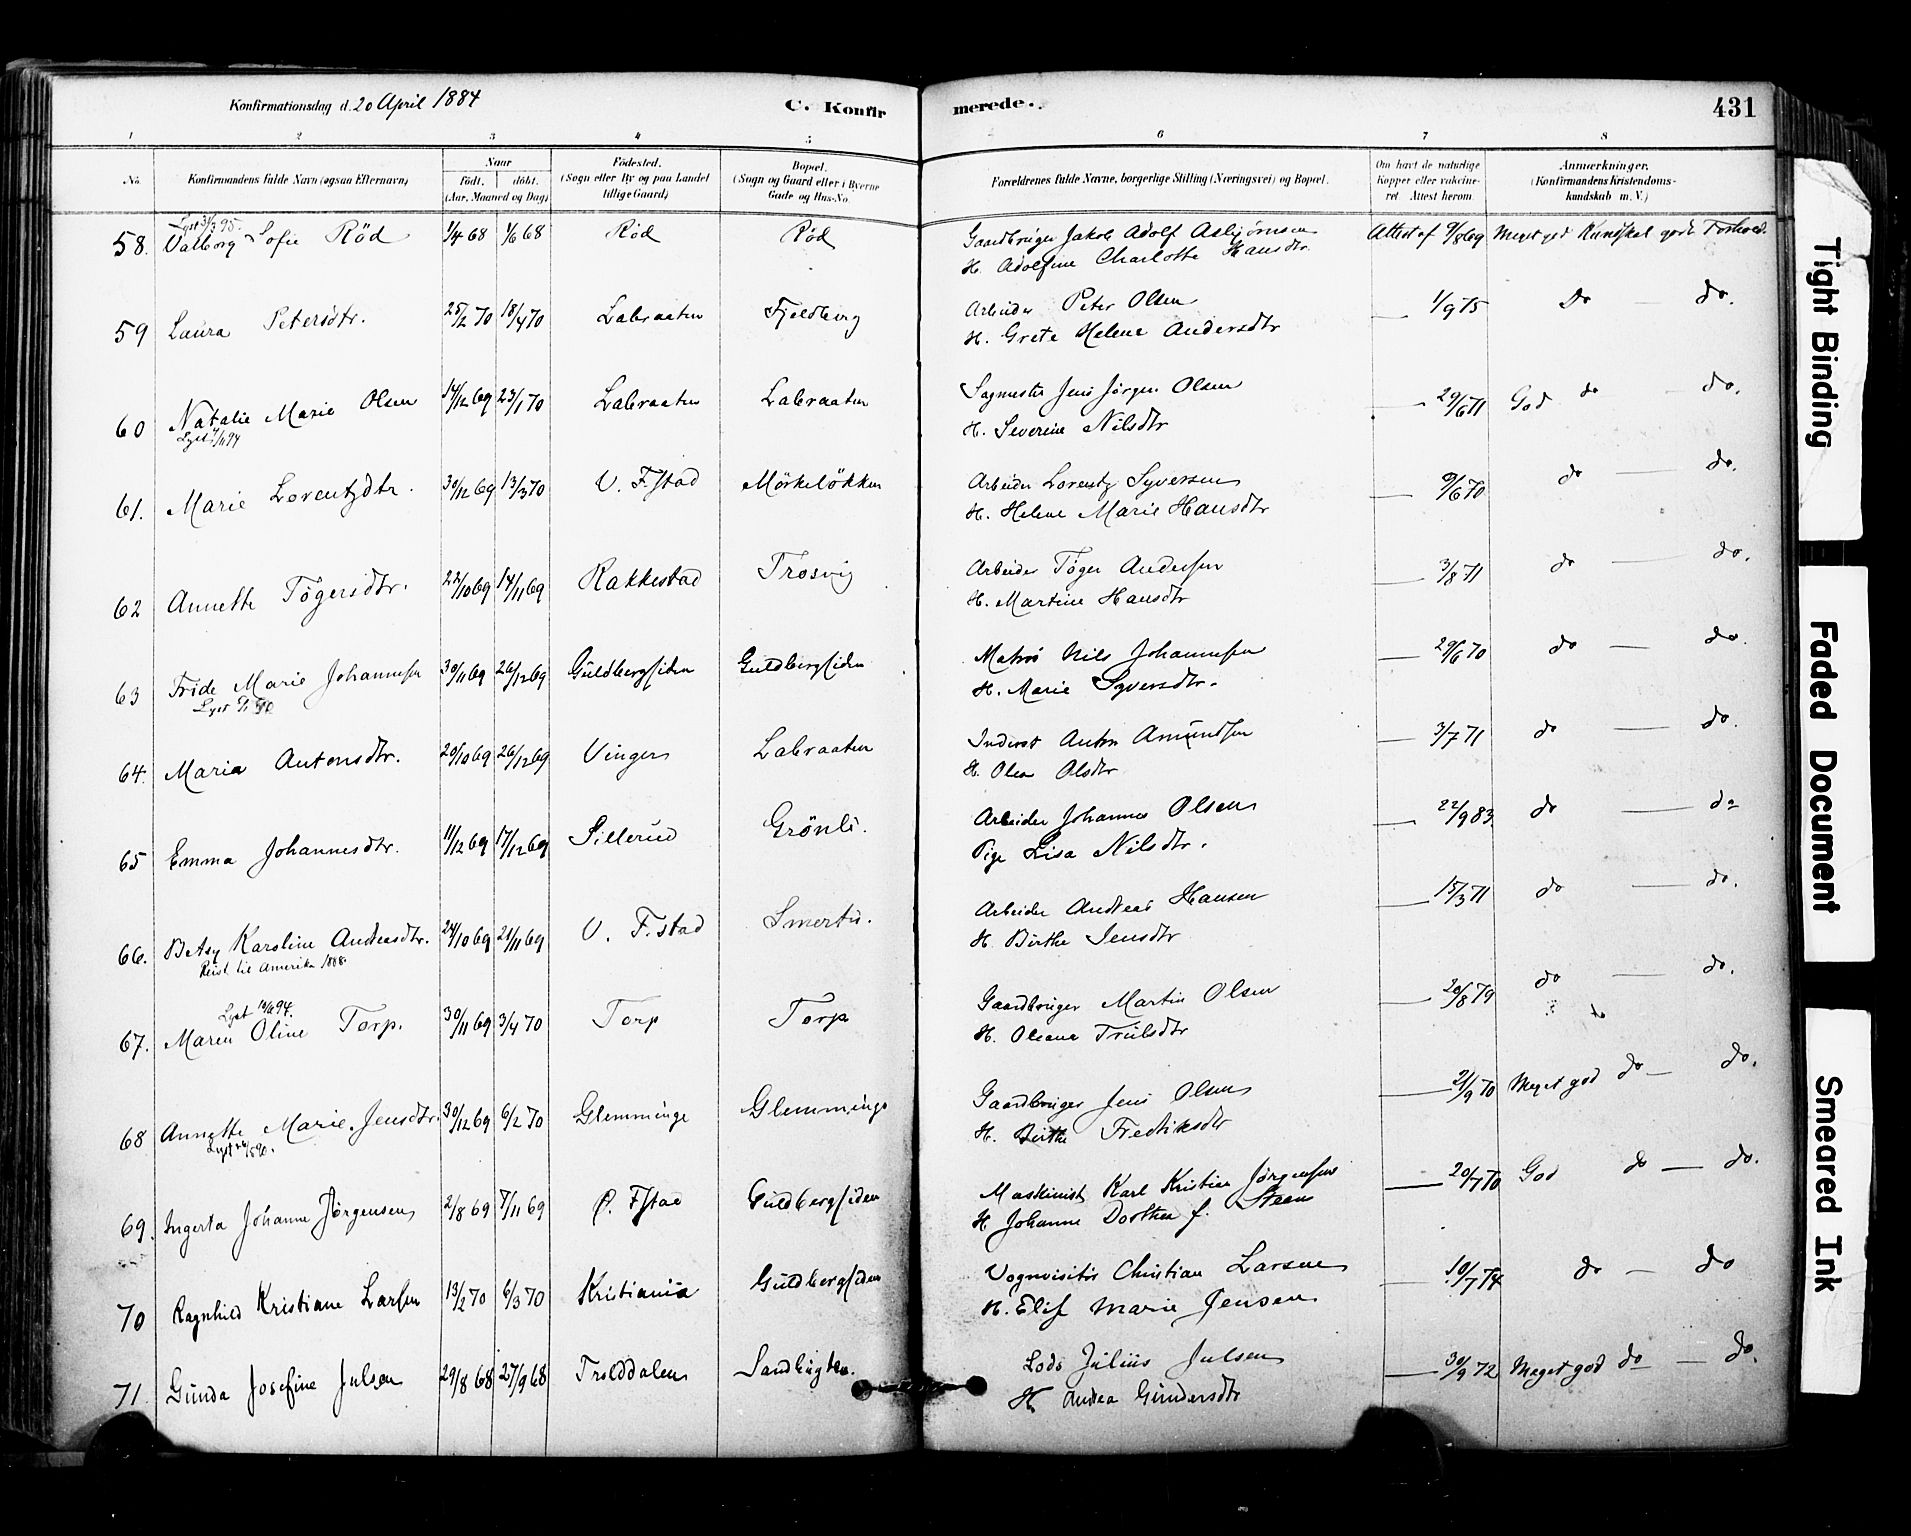 Konfirmationsdag d. 20 April 1884 C. Konfir merede. 431
1 2 3 4 5 6 7 8
No. Konfirmandens fulde Navn (ogsaa Efternavn) Naar Født. døbt. (Aar, Maaned og Dag) Fødested. (Sogn eller By og paa Landet tillige Gaard) Bopæl. (Sogn og Gaard eller i Byerne Gade og Hus-No. Forældrenes fulde Navne, borgerlige Stilling (Næringsvei) og Bopæl. Om havt de naturlige Kopper eller vaccineret. Attest herom. Anmærkninger. (Konfirmandens Kristendomskundskab m. V.)
Lyst 31/3 95.
58. Valborg Sofie Röd 1/4 68 1/6 68 Röd Röd Gaardbruger Jakob Adolf Asbjörnsen Attest af 9/8 69 Meget god Kundskab gode Forhold.
H. Adolfine Charlotte Hansdtr.
59 Laura Petersdtr. 25/2 70 18/4 70 Labraaten Fjeldberg Arbeider Peter Olsen — 1/9 75 Do — do.
H. Grete Helene Andersdtr
60 Natalie Marie Olsen 14/12 69 23/1 70 Labraaten Labraaten Sagmester Jens Jörgen Olsen — 29/6 71 God do — do.
Lyst /11 94 H. Severine Nilsdtr
61. Marie Lorentzdtr. 30/12 69 13/3 70 V. F.stad Mörkelökken Arbeider Lorentz Syversen — 9/6 70 do — do.
H. Helene Marie Hansdtr
62 Annette Tögersdtr. 22/10 69 14/11 69 Rakkestad Trosvig Arbeider Töger Andersen — 3/8 71 do — do.
H. Martine Hansdtr
63 Fride Marie Johannesen 30/11 69 26/12 69 Guldbergsiden Guldbergsiden Matros Nils Johannesen — 29/6 70 do — do.
Lyst 90 H. Marie Syversdtr.
64. Maria Antonsdtr. 20/10 69 26/12 69 Vinger Labraaten Inderst Anton Amundsen — 3/7 71 do — do.
H. Olea Olsdtr
65 Emma Johannesdtr. 11/12 69 17/12 69 Sillerud Grönli. Arbeider Johannes Olsen — 22/9 83. do — do
Pige Lisa Nilsdtr.
66. Betsy Karoline Andreasdtr. 24/10 69 21/11 69 V. F.stad Smertu. Arbeider Andreas Hansen — 15/3 71 do — do.
Reist til Amerika 1888. H. Birthe Jensdtr
Lyst 94.
67. Maren Oline Torp. 30/11 69 3/4 70 Torp Torp Gaardbruger Martin Olsen — 20/8 79 do — do.
H. Oleana Trulsdtr
68 Annette Marie Jensdtr. 30/12 69 6/2 70 Glemminge Glemminge Gaardbruger Jens Olsen — 21/9 70 Meget god do — do.
Lyst /5 90. H. Birthe Fredriksdtr
69. Ingerta Johanne Jörgensen 2/8 69 7/11 69 Ö. F.stad Guldbergsiden Maskinist Karl Kristian Jörgensen — 20/7 70 God do — do.
H Johanne Dorthea f. Steen
70 Ragnhild Kristiane Larsen 13/2 70 6/3 70 Kristiania Guldbergsiden Vognvisitör Christian Larsen — 10/7 74 do — do
H. Elise Marie Jensen
71. Gunda Josefine Julsen 29/8 68 27/9 68 Trolddalen Sandbugten. Lods Julius Julsen — 30/9 72 Meget god do — do.
H Andrea Gundersdtr
Tight Binding
Faded Document
Smeared Ink